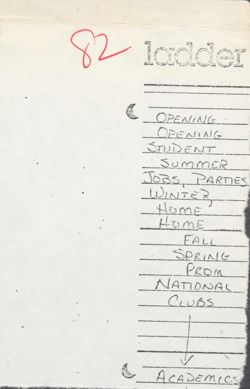 82
ladder
OPENING
OPENING
STUDENT
SUMMER
JOBS, PARTIES
WINTER,
HOME
HOME
FALL
SPRING
PROM
NATIONAL
CLUBS
ACADEMICS